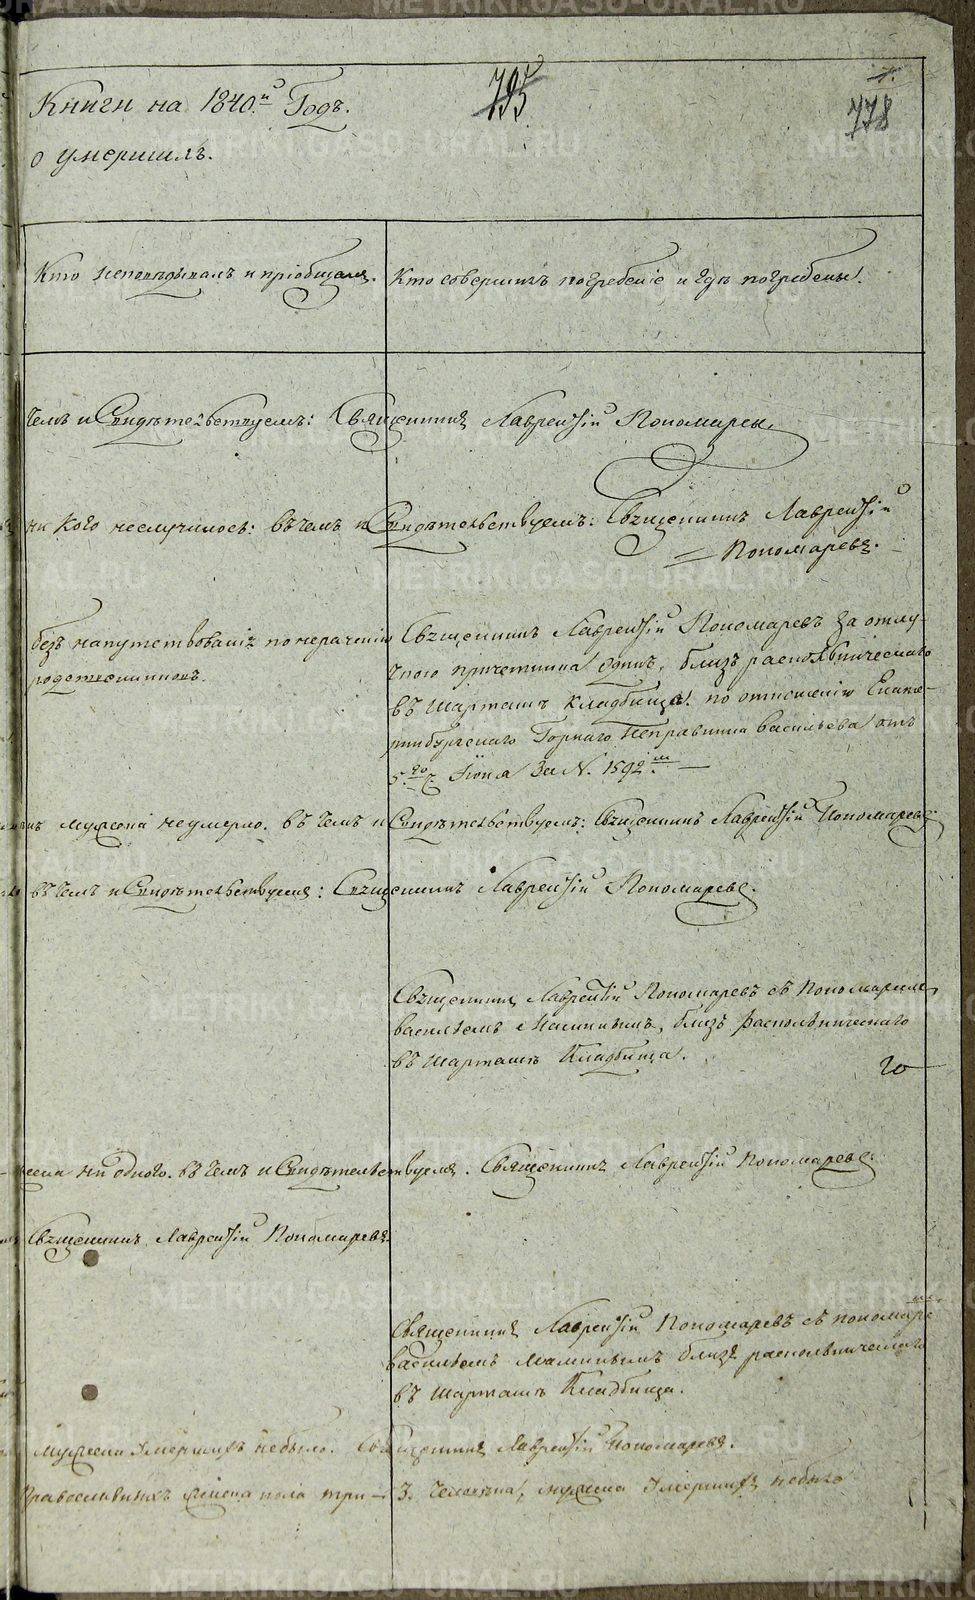 Книги на 1840.й Годъ.
795
7.
778
о умершихъ.
Кто исповѣдывалъ и пріобщалъ.
Кто совершилъ погребеніе и гдѣ погребены.
чемъ и Свидѣтельствуемъ: Священникъ Лаврентій Пономаревъ.
ни кого неслучилось: въ чемъ и Свидѣтельствуемъ: Священникъ Лаврентій
Пономаревъ.
безъ напутствованія по нерачению
родственниковъ.
Священникъ Лаврентій Пономаревъ за отлу-
чкого причетника одинъ, близь раскольническаго
въ Шарташѣ кладбища. по отношенію Екате-
ринбургскаго Горнаго Исправника Васильева отъ
5.го Іюня за N. 1592.м —
мужеска неумерло. въ чемъ и Свидѣтельствуемъ: Священникъ Лаврентій Пономаревъ
въ чемъ и Свидѣтельствуемъ: Священникъ Лаврентій Пономаревъ.
Священникъ Лаврентій Пономаревъ съ Пономаремъ
Васильемъ Маминымъ, близь раскольническаго
въ Шарташѣ Кладбища.
ни одного. въ чемъ и Свидѣтельствуемъ. Священникъ Лаврентій Пономаревъ.
Священникъ Лаврентій Пономаревъ.
Священникъ Лаврентій Пономаревъ съ пономаре
Васильемъ Маминымъ близь раскольническаго
въ Шарташѣ Кладбища.
мужеска Умершихъ небыло. Священникъ Лаврентій Пономаревъ.
Православныхъ женска пола три — 3. Человѣка, мужеска Умершихъ небыло
METRIKI.GASO-URAL.RU